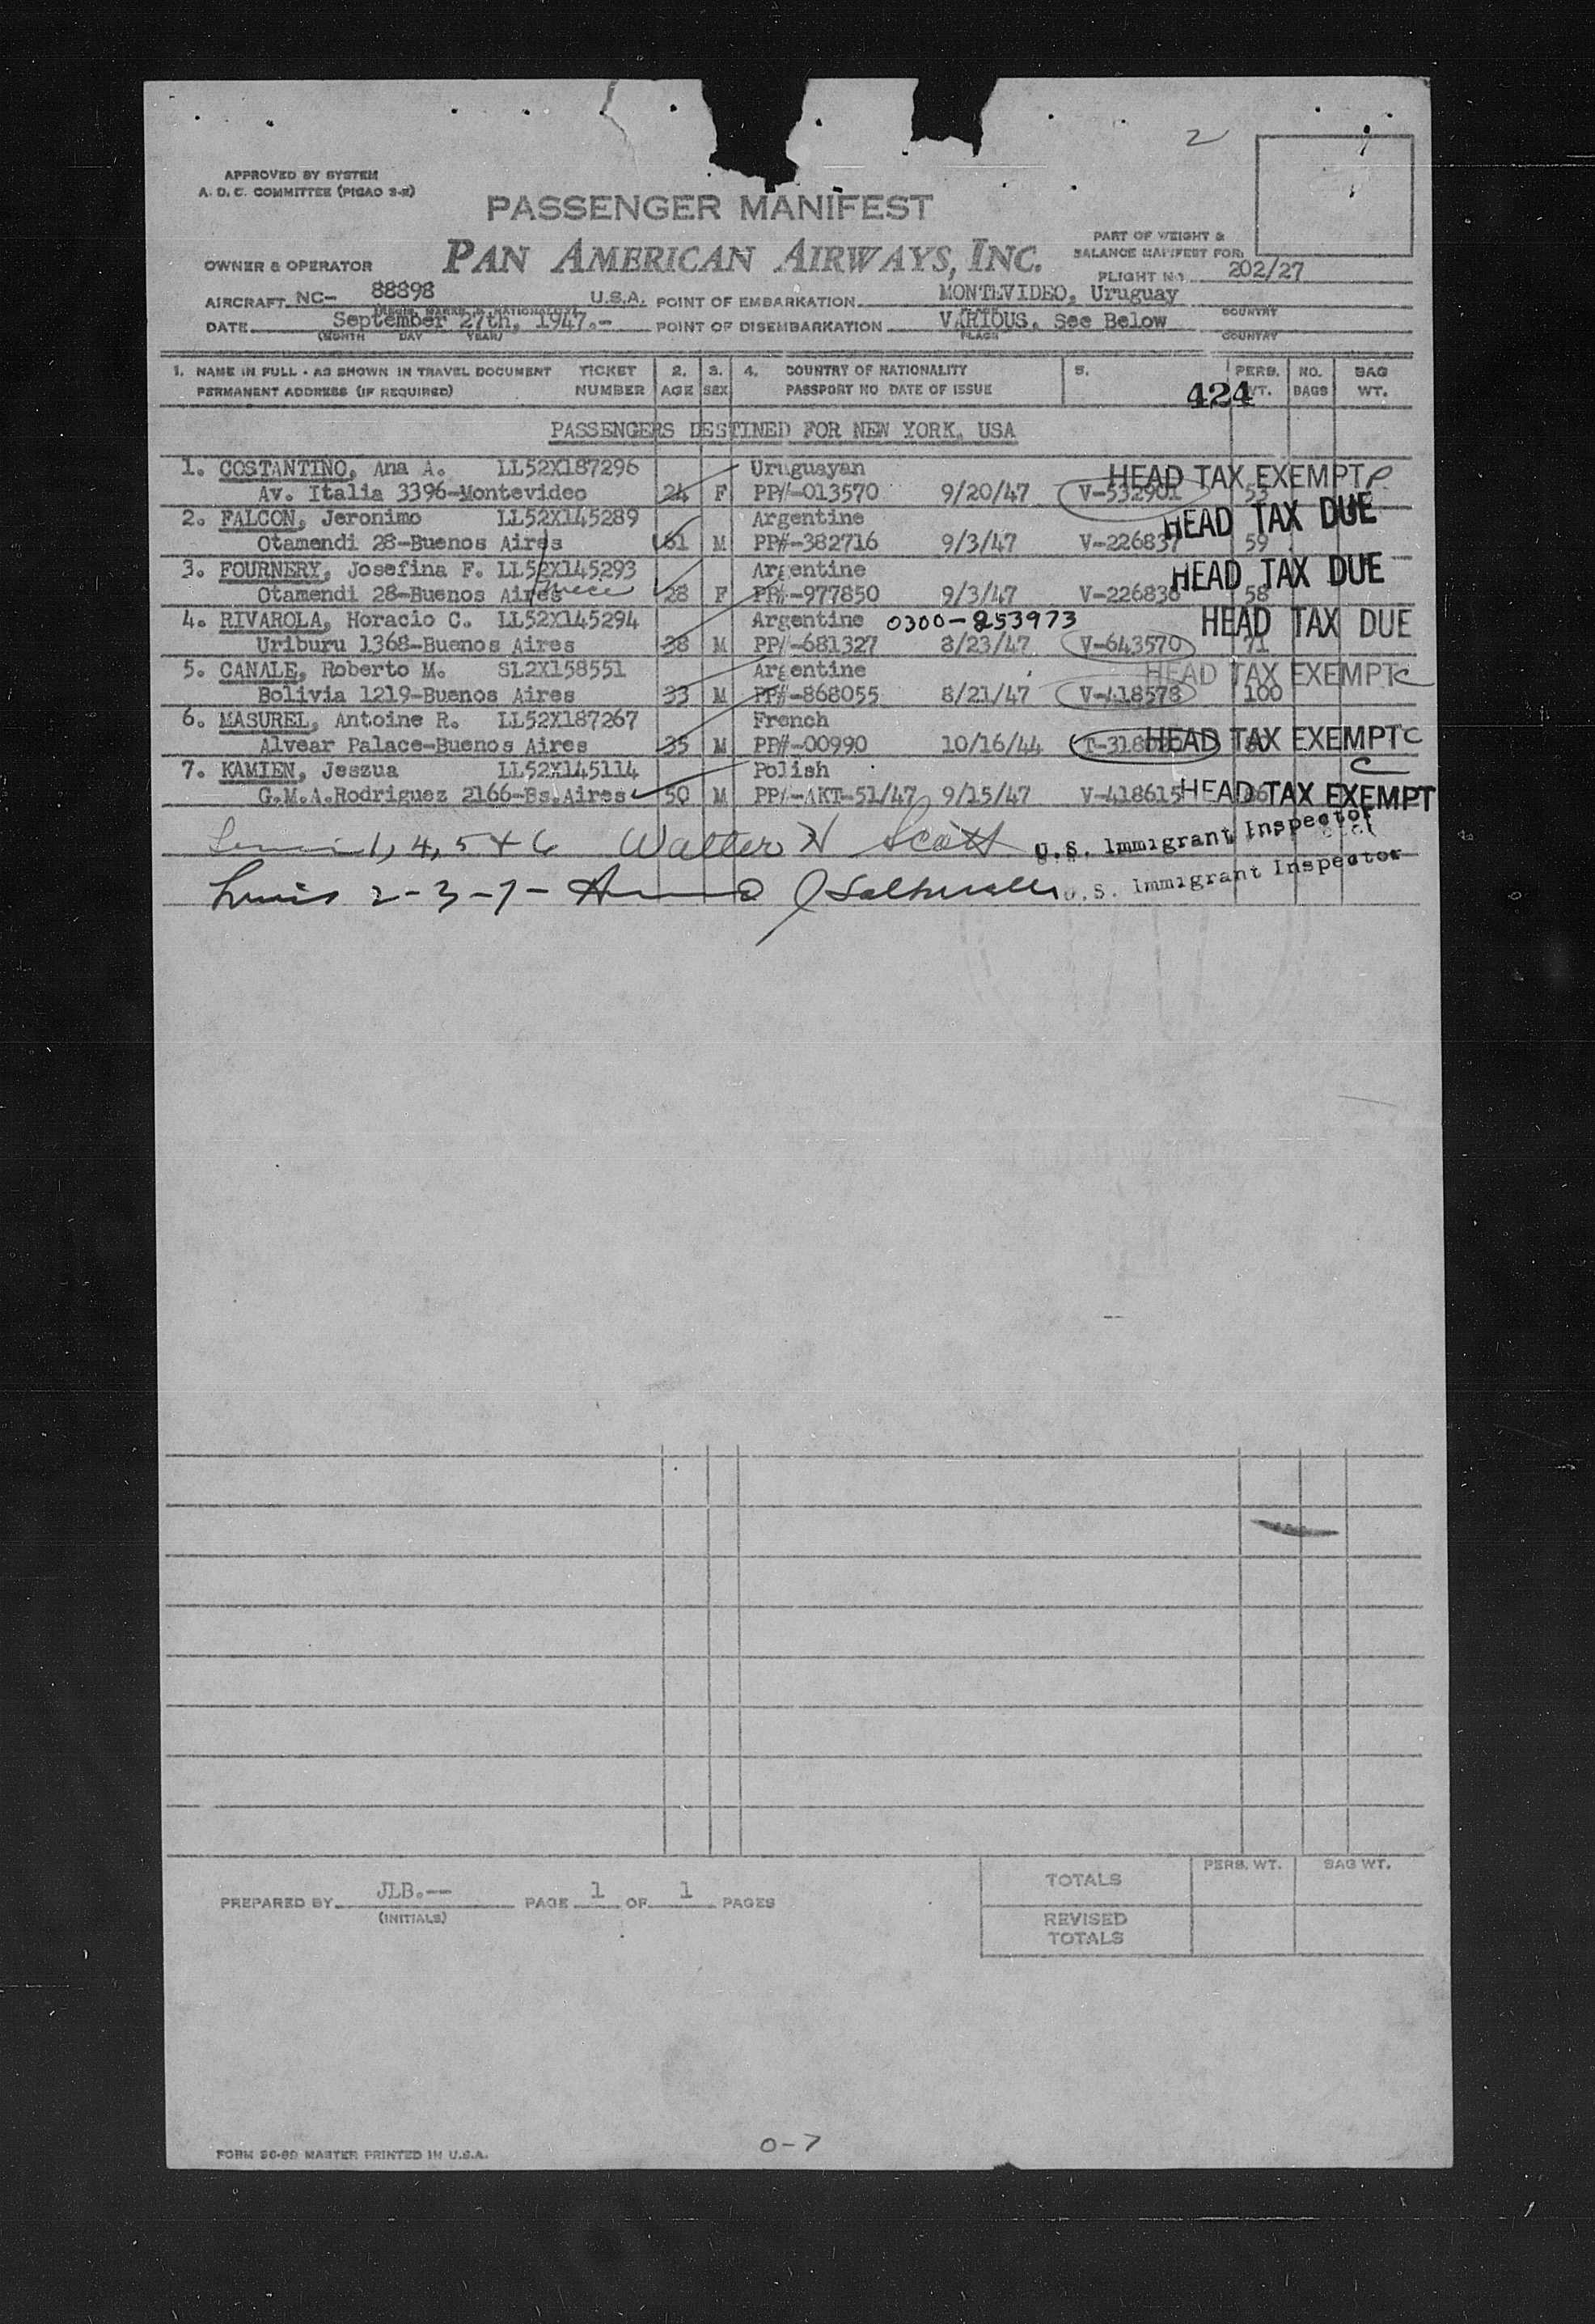 2
APPROVED BY SYSTEM
A. D. C. COMMITTEE (PICAO 3-E)
PASSENGER MANIFEST
PAN AMERICAN AIRWAYS, INC.
PART OF WEIGHT &
BALANCE MANIFEST FOR:
OWNER & OPERATOR
FLIGHT NO. 202/27
AIRCRAFT NC- 88898 U.S.A. POINT OF EMBARKATION MONTEVIDEO, Uruguay
COUNTRY
DATE September 27th, 1947.- POINT OF DISEMBARKATION VARIOUS. See Below
(MONTH DAY YEAR) PLACE COUNTRY
1. NAME IN FULL - AS SHOWN IN TRAVEL DOCUMENT TICKET 2. 3. 4. COUNTRY OF NATIONALITY 5. PERS. NO. BAG
PERMANENT ADDRESS (IF REQUIRED) NUMBER AGE SEX PASSPORT NO DATE OF ISSUE 424 WT. BAGS WT.
PASSENGERS DESTINED FOR NEW YORK, USA
1. COSTANTINO, Ana A. LL52X187296 Uruguayan HEAD TAX EXEMPT
Av. Italia 3396-Montevideo 24 F PP#-013570 9/20/47 V-532901 53
2. FALCON, Jeronimo LL52X145289 Argentine HEAD TAX DUE
Otamendi 28-Buenos Aires 61 M PP#-382716 9/3/47 V-226837 59
3. FOURNERY, Josefina F. LL52X145293 Argentine HEAD TAX DUE
Otamendi 28-Buenos Aires 28 F PP#-977850 9/3/47 V-226838 58
4. RIVAROLA, Horacio C. LL52X145294 Argentine 0300-253973 HEAD TAX DUE
Uriburu 1368-Buenos Aires 38 M PP#-681327 8/23/47 V-643570 71
5. CANALE, Roberto M. SL2X158551 Argentine HEAD TAX EXEMPT C
Bolivia 1219-Buenos Aires 33 M PP#-868055 8/21/47 V-418578 100
6. MASUREL, Antoine R. LL52X187267 French
Alvear Palace-Buenos Aires 35 M PP#-00990 10/16/44 HEAD TAX EXEMPT C
7. KAMIEN, Jeszua LL52X145114 Polish C
G.M.A.Rodriguez 2166-Bs.Aires 50 M PP#-AKT-51/47 9/15/47 V-418615 HEAD TAX EXEMPT
1, 4, 5 + 6 Walter H Scott U.S. Immigrant Inspector
2-3-7- U.S. Immigrant Inspector
TOTALS PERS. WT. BAG WT.
PREPARED BY JLB.-- PAGE 1 OF 1 PAGES
(INITIALS)
REVISED
TOTALS
0-7
FORM 36-89 MASTER PRINTED IN U.S.A.